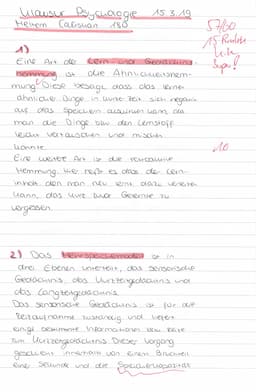 Klausur Psychologie 15.3.19
Meltem Caliskan 180
57/60
15 Punkte
Super!
1)
Eine Art der Lern- und Gedächtnis-
hemmung ist die Ähnlichkeitshem-
mung. Diese besagt, dass das lernen
ähnlicher Dinge in kurzer Zeit sich negativ
auf das Speichern auswirken kann, da
man die Dinge bzw. den Lernstoff
leicht vertauschen und mischen
könnte.
Eine weitere Art ist die
Hemmung. Hier heißt es dass der Lern-
inhalt den man neu lernt dazu
kann, das kurz zuvor Gelernte zu
vergessen.
10
2) Das ist in
drei Ebenen unterteilt, das sensorische
Gedächtnis, das Kurzzeitgedächtnis und
das Langzeitgedächtnis.
Das sensorische Gedächtnis ist für die
Reizaufnahme zuständig und liefert
einige bestimmte Informationen
zum Kurzzeitgedächtnis. Dieser Vorgang
geschieht innerhalb von einem Bruchteil
einer Sekunde und die Speicherkapazität